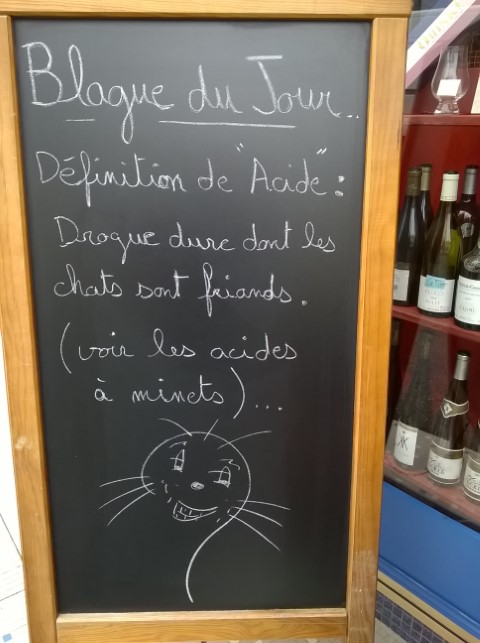 Blague du Jour..
Définition de "Acide":
Drogue dure dont les
chats sont friands.
(voir les acides
à minets)...